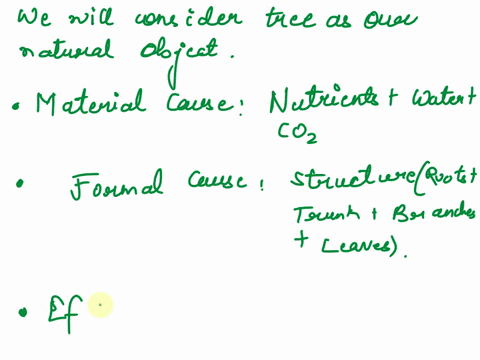 We will consider tree as our
natural Object.
• Material Cause: Nutrients + Water +
CO2
• Formal Cause: Structure (Roots +
Trunk + Branches
+ Leaves).
• Ef